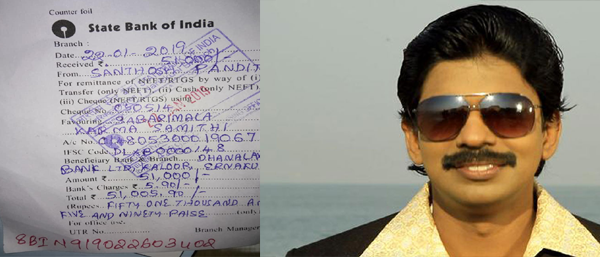 Counter foil
State Bank of India
Branch :
Date 22-01-2019
Received ₹ 51000/-
From SANTHOSH PANDIT
For remittance of NEFT/RTGS by way of (i)
Transfer (only NEFT), (ii) Cash (only NEFT)
(iii) Cheque (NEFT/RTGS) using
Cheque No. 050514
Favouring SABARIMALA
KARMA SAMITHI
A/c No. 05300019067
IFSC Code DLXB0000148
Beneficiary Bank & Branch DHANALAX
BANK LTD, KALOOR, ERNAKU
Amount ₹ 51,000/-
Bank's Charges ₹ 5.90/-
Total ₹ 51,005.90/-
(Rupees FIFTY ONE THOUSAND A
FIVE AND NINETY PAISE (only
For office use:
UTR No. Branch Manager
SBIN919022603402